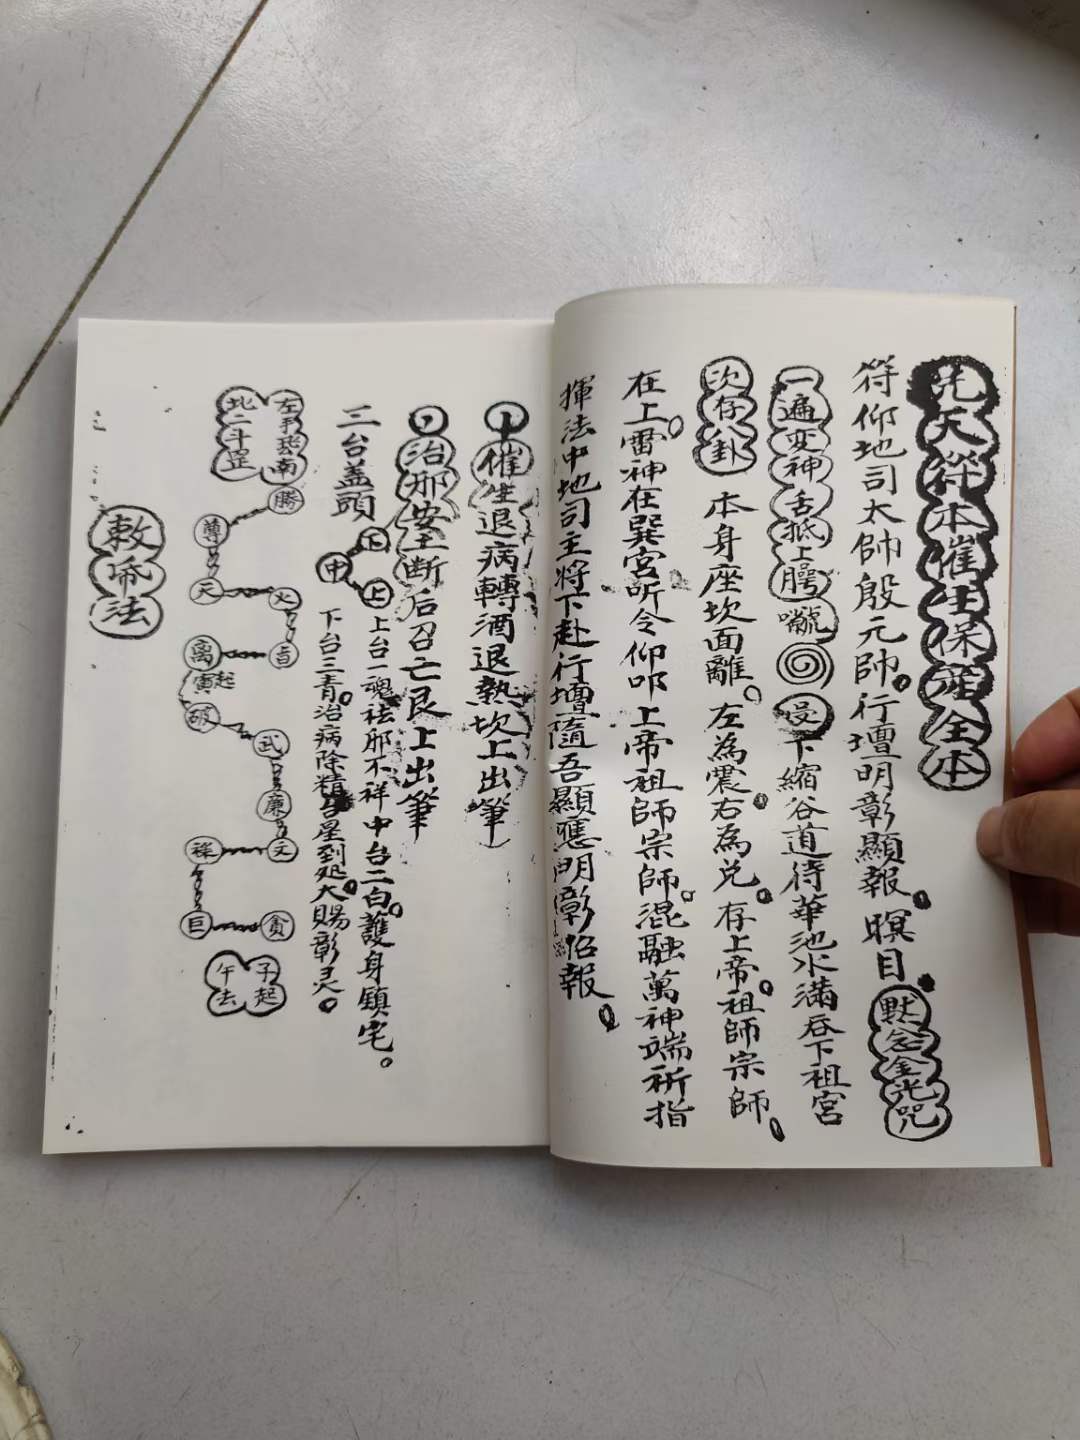 先天符本催生保產全本
符仰地司太帥殷元帥。行壇明彰顯報。瞑目。默念金光咒
一遍变神舌抵上腭 下縮谷道待華池水滿吞下祖宮
次存卦 本身座坎面離。左為震。右為兑。存上帝。祖師宗師。
在上。雷神在巽宮听令仰叩上帝祖師宗師。混融萬神端祈指
揮法中地司主將下赴行壇隨吾顯應明彰伯報。
催生退病轉酒退熱坎上出筆
治邪安土断后召亡艮上出筆
三台盖頭
下
中
上
上台一魂祛邪不祥中台二白。護身鎮宅。
下台三青。治病除精 星到処。大賜彰灵。
左手 南
北二斗罡
勝
尊
天
火
音
离寅起
破
武
廉
文
祿
巨
貪
子起
午去
敕 法